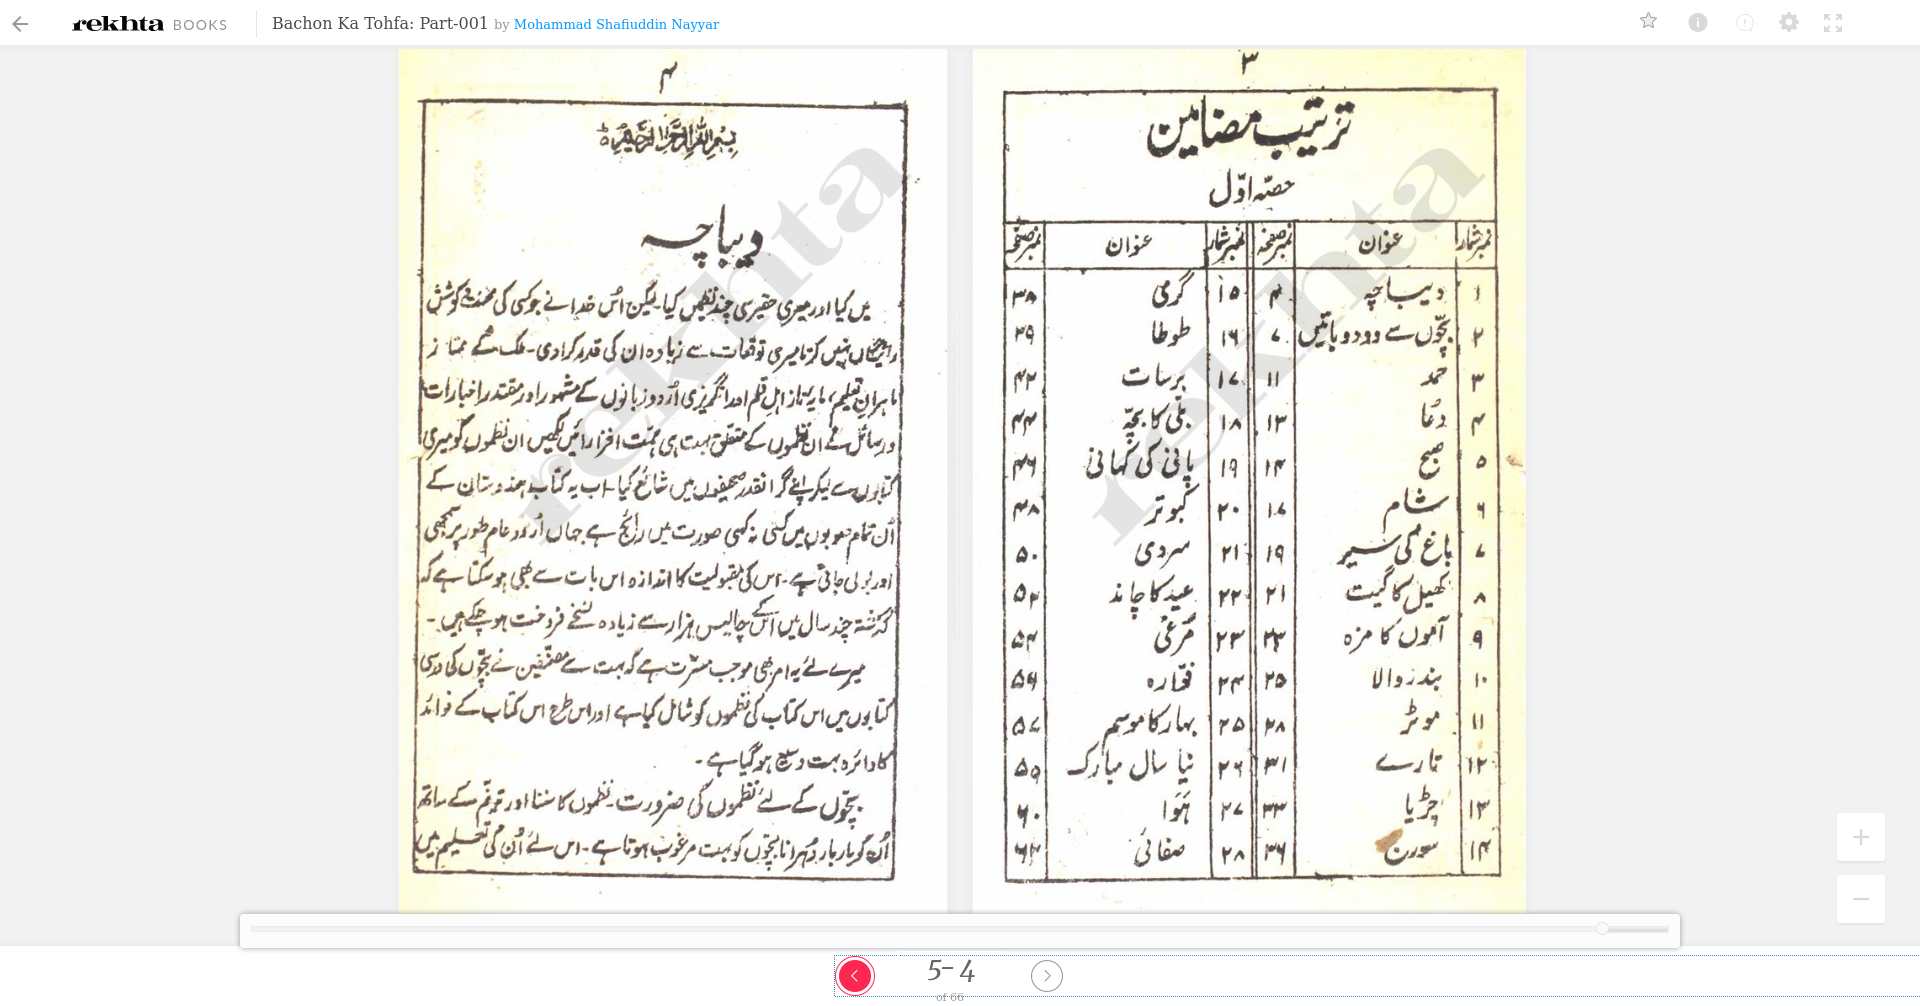 rekhta BOOKS Bachon Ka Tohfa: Part-001 by Mohammad Shafiuddin Nayyar
۳
ترتیب مضامین
حصّہ اوّل
نمبر شمار عنوان نمبر صفحہ نمبر شمار عنوان نمبر صفحہ
۱ دیباچہ ۴ ۱۵ گرمی ۳۸
۲ بچّوں سے دو دو باتیں ۷ ۱۶ طوطا ۳۹
۳ حمد ۱۱ ۱۷ برسات ۴۲
۴ دُعا ۱۳ ۱۸ بلّی کا بچّہ ۴۴
۵ صبح ۱۴ ۱۹ پانی کی کہانی ۴۶
۶ شام ۱۷ ۲۰ کبوتر ۴۸
۷ باغ کی سیر ۱۹ ۲۱ سردی ۵۰
۸ کھیل کا گیت ۲۱ ۲۲ عید کا چاند ۵۲
۹ آموں کا مزہ ۲۳ ۲۳ مُرغی ۵۴
۱۰ بندر والا ۲۵ ۲۴ فوّارہ ۵۶
۱۱ موٹر ۲۸ ۲۵ بہار کا موسم ۵۷
۱۲ تارے ۳۱ ۲۶ نیا سال مبارک ۵۹
۱۳ چڑیا ۳۳ ۲۷ ہَوا ۶۰
۱۴ سورج ۳۶ ۲۸ صفائی ۶۳
rekhta
۴
بسم اللہ الرحمٰن الرحیم ط
دیباچہ
میں کیا اور میری حقیر سی چند نظمیں کیا۔ لیکن اُس خدا نے جو کسی کی محنت و کوشش
رائیگاں نہیں کرتا میری توقعات سے زیادہ ان کی قدر کرا دی۔ ملک کے ممتاز
ماہرانِ تعلیم، مایہ ناز اہلِ قلم اور انگریزی اُردو زبانوں کے مشہور اور مقتدر اخبارات
و رسائل نے ان نظموں کے متعلق بہت ہی ہمّت افزا رائیں لکھیں ان نظموں کو میری
کتابوں سے لیکر اپنے گرانقدر صحیفوں میں شائع کیا۔ اب یہ کتاب ہندوستان کے
اُن تمام صوبوں میں کسی نہ کسی صورت میں رائج ہے جہاں اُردو عام طور پر سمجھی
اور بولی جاتی ہے۔ اس کی مقبولیت کا اندازہ اس بات سے بھی ہو سکتا ہے کہ
گذشتہ چند سال میں اس کے چالیس ہزار سے زیادہ نسخے فروخت ہو چکے ہیں۔
میرے لئے یہ امر بھی موجب مسرّت ہے کہ بہت سے مصنّفین نے بچّوں کی درسی
کتابوں میں اس کتاب کی نظموں کو شامل کیا ہے اور اس طرح اس کتاب کے فوائد
کا دائرہ بہت وسیع ہو گیا ہے۔
بچّوں کے لئے نظموں کی ضرورت۔ نظموں کا سننا اور ترنّم کے ساتھ
اُن کو بار بار دُہرانا بچّوں کو بہت مرغوب ہوتا ہے۔ اس لئے اُن کی تعلیم میں
rekhta
5- 4
of 66